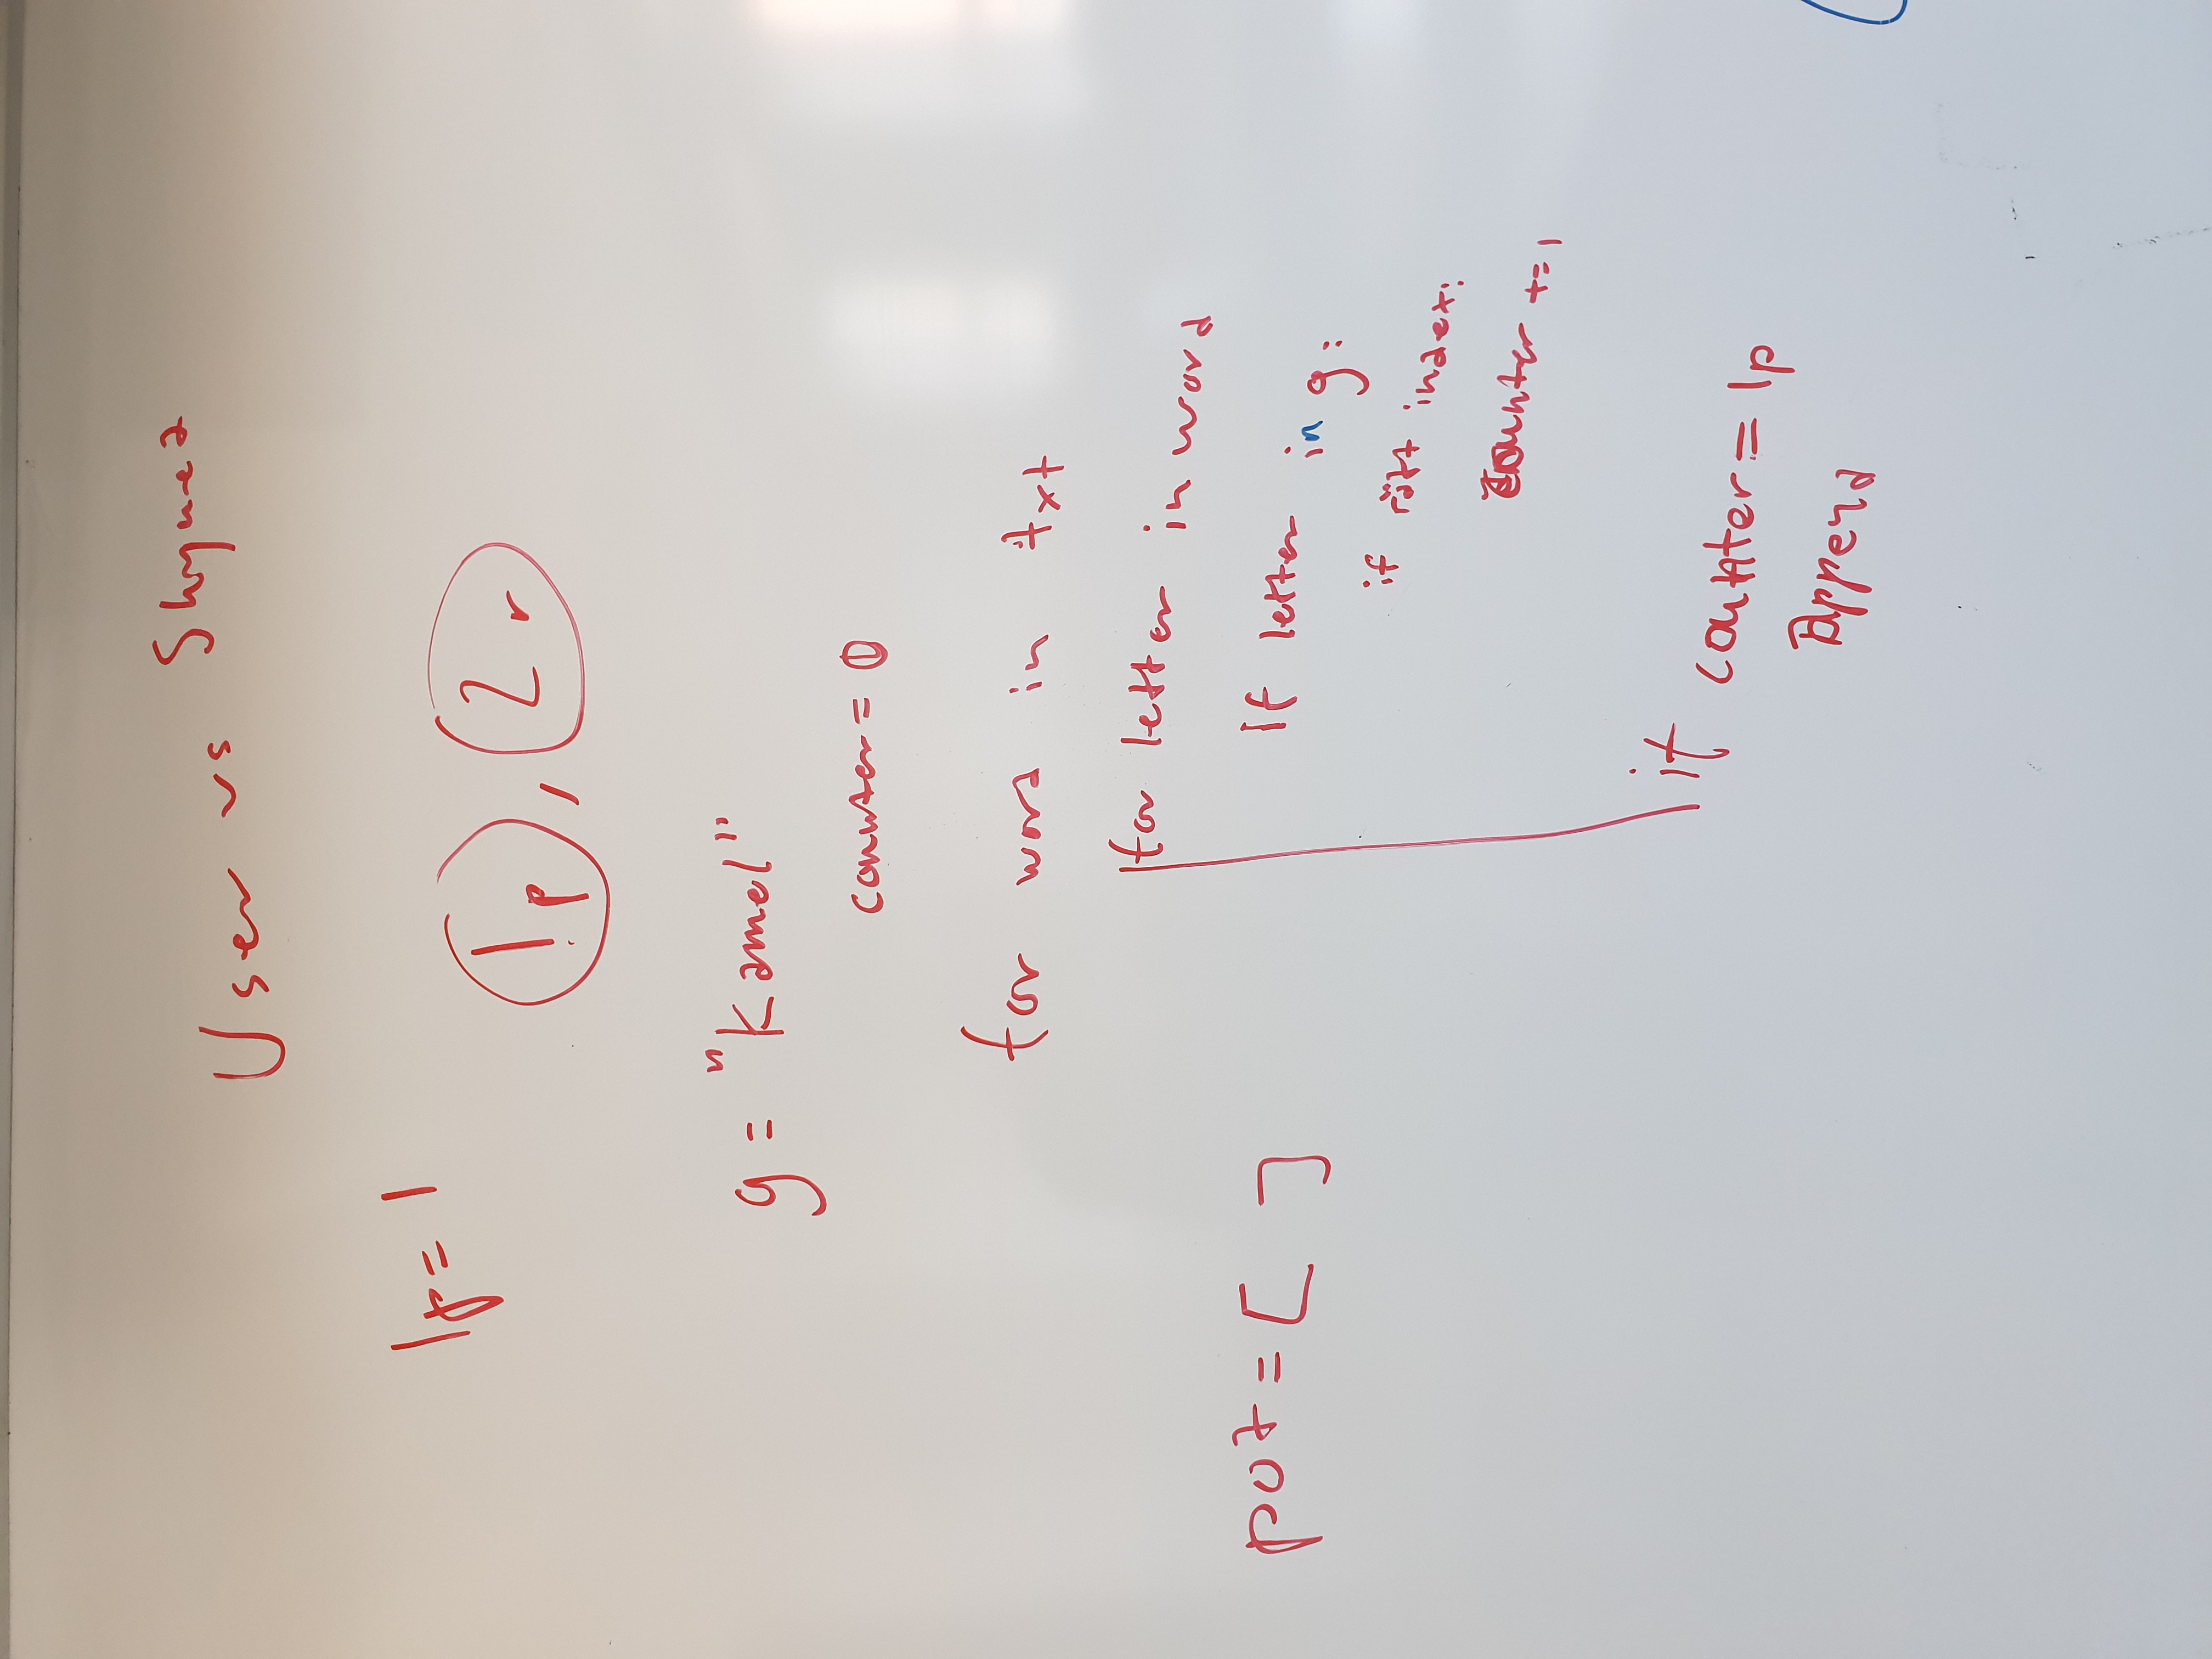 User vs Skynet
1p = 1
1p, 2r
g = "Kamel"
counter = 0
for word in txt
for letter in word
If letter in g:
pot = [ ]
if rätt index:
counter += 1
if counter = 1p
Append